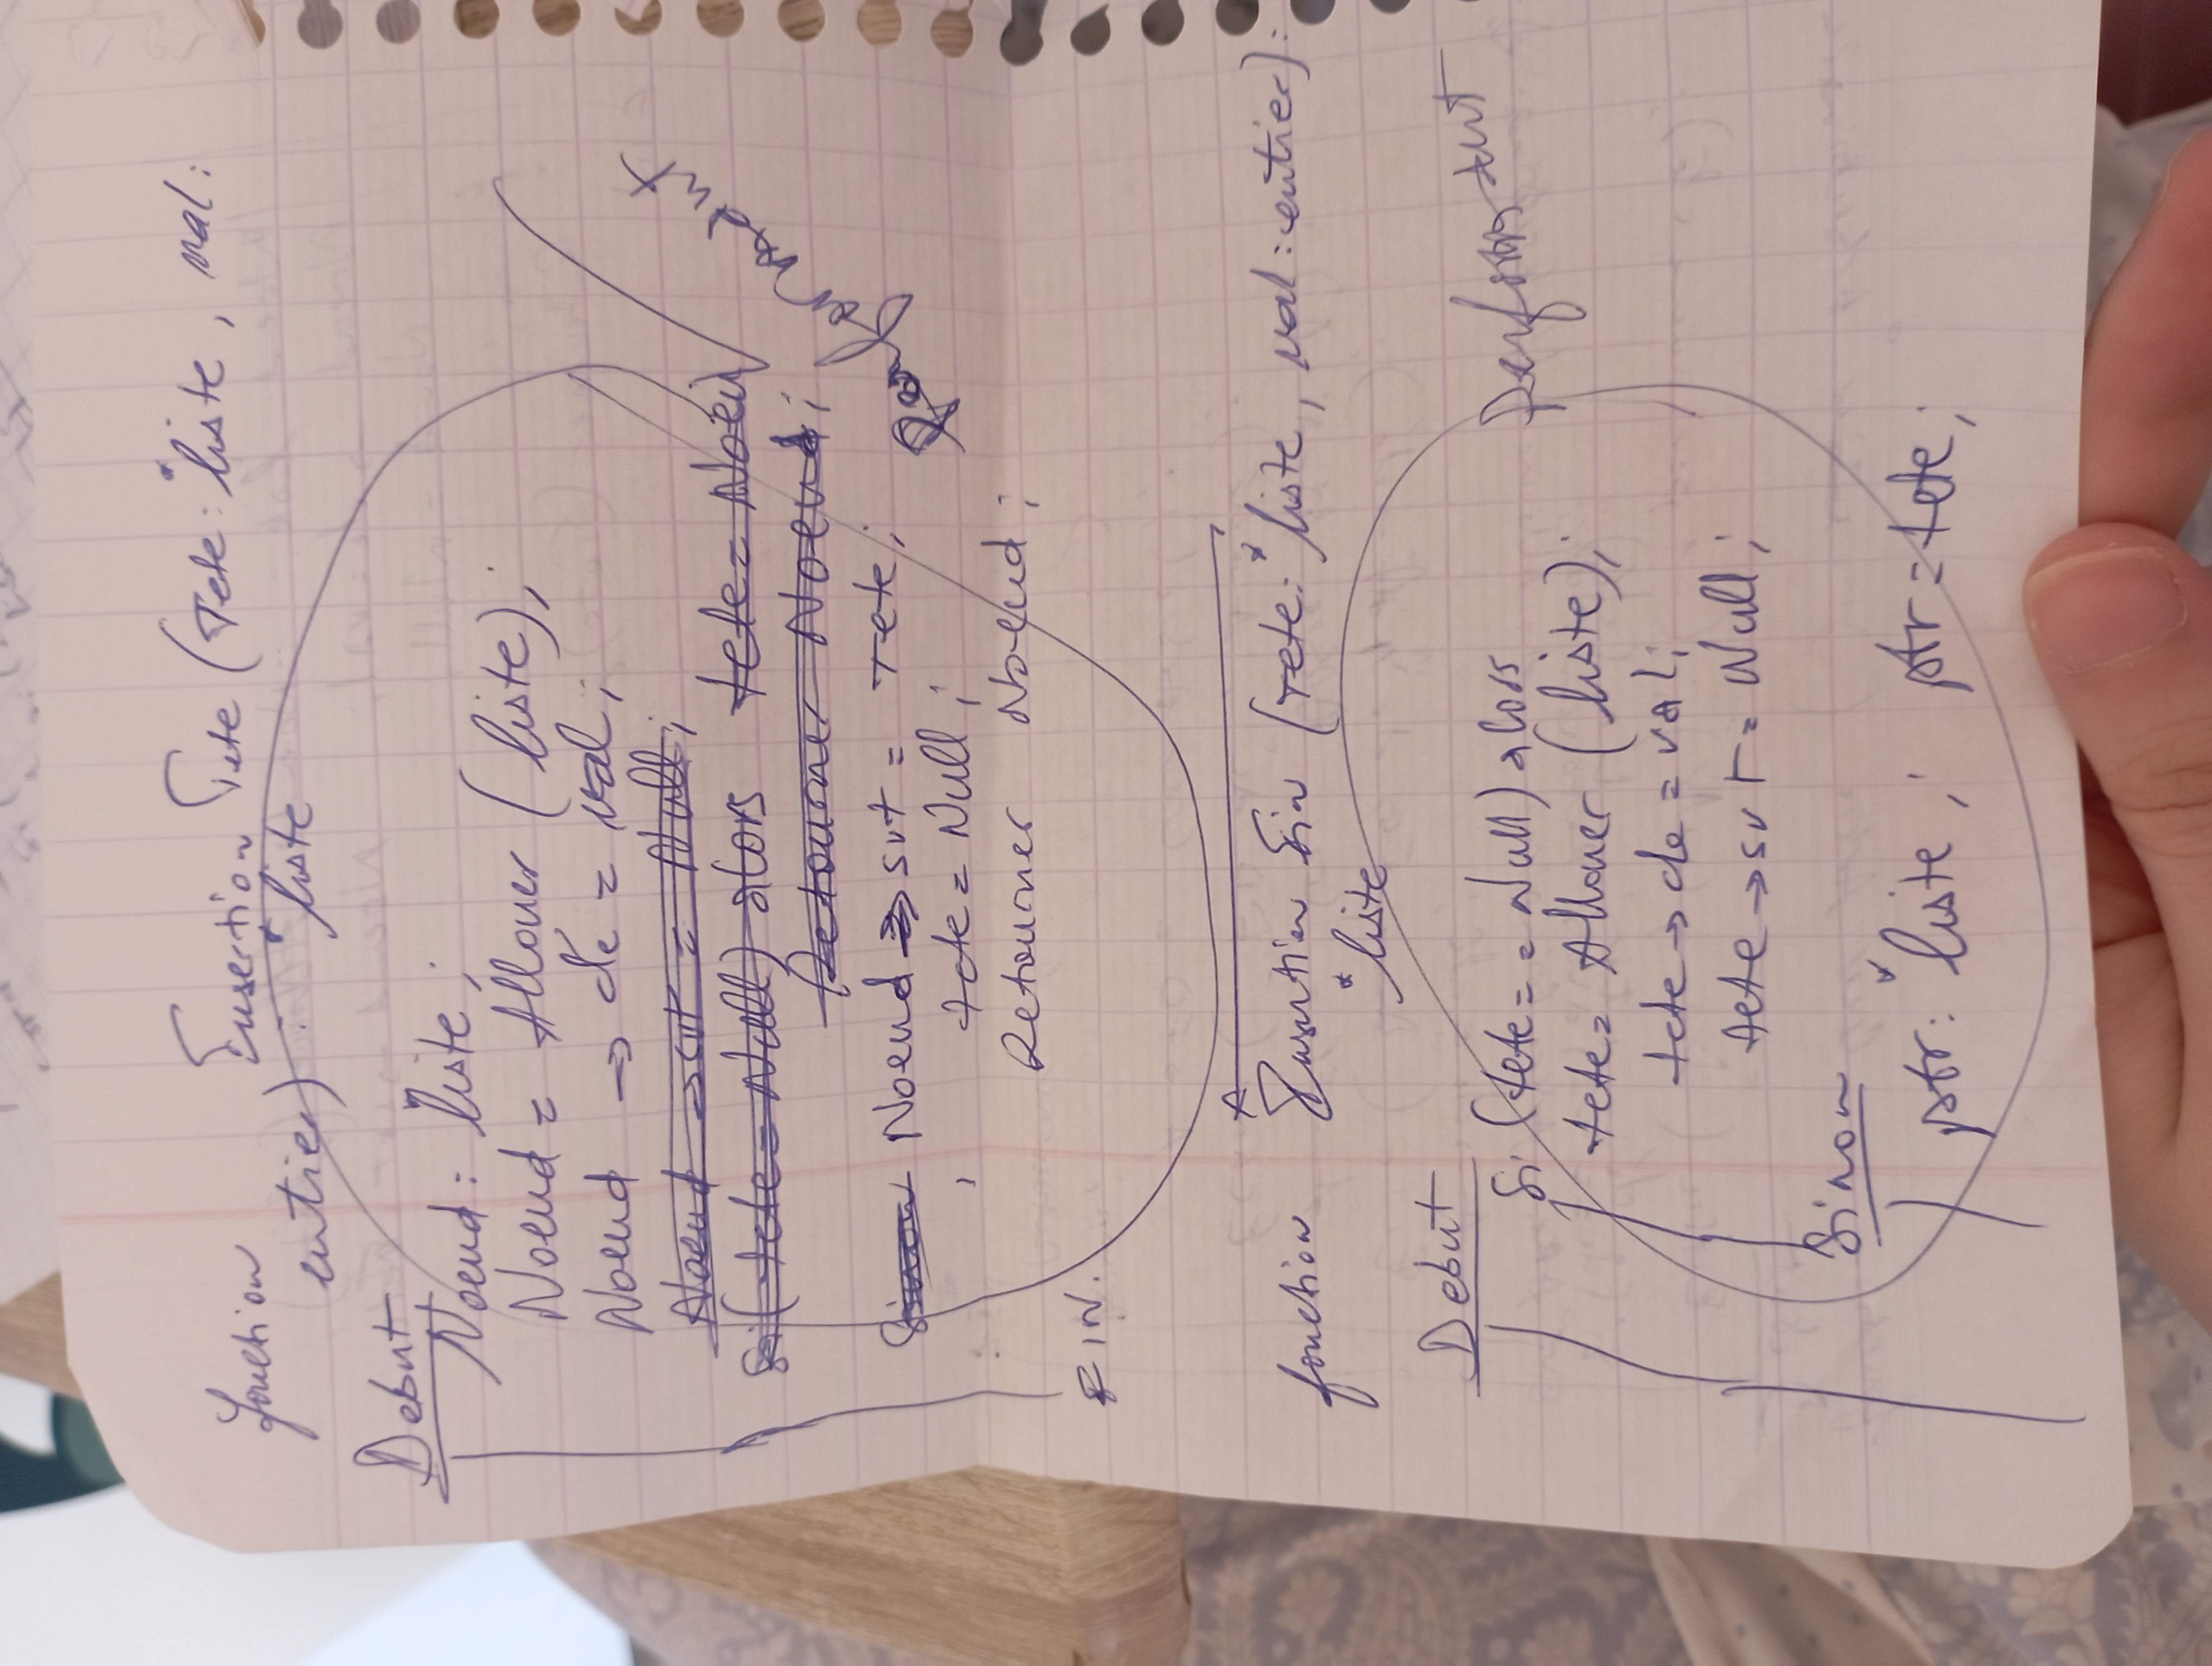 fonction Insertion Tete (Tete: *liste, val:
entier) : *liste
Debut
Noeud: *liste;
Noeud = Allouer (liste);
Noeud → de = val;
Noeud → svt = Null;
Si (tete = Null) alors tete = Noeu
Retourner Noeud;
Sinon Noeud → svt = Tete;
tete = Null;
Retourner Noeud;
FIN.
Performant
fonction Insertion Fin (Tete: *liste, val: entier):
*liste
Debut
Si (tete == Null) alors
Performant
tete = Allouer (liste);
tete → de = val;
tete → svt = Null;
Sinon
ptr: *liste; ptr = tete;